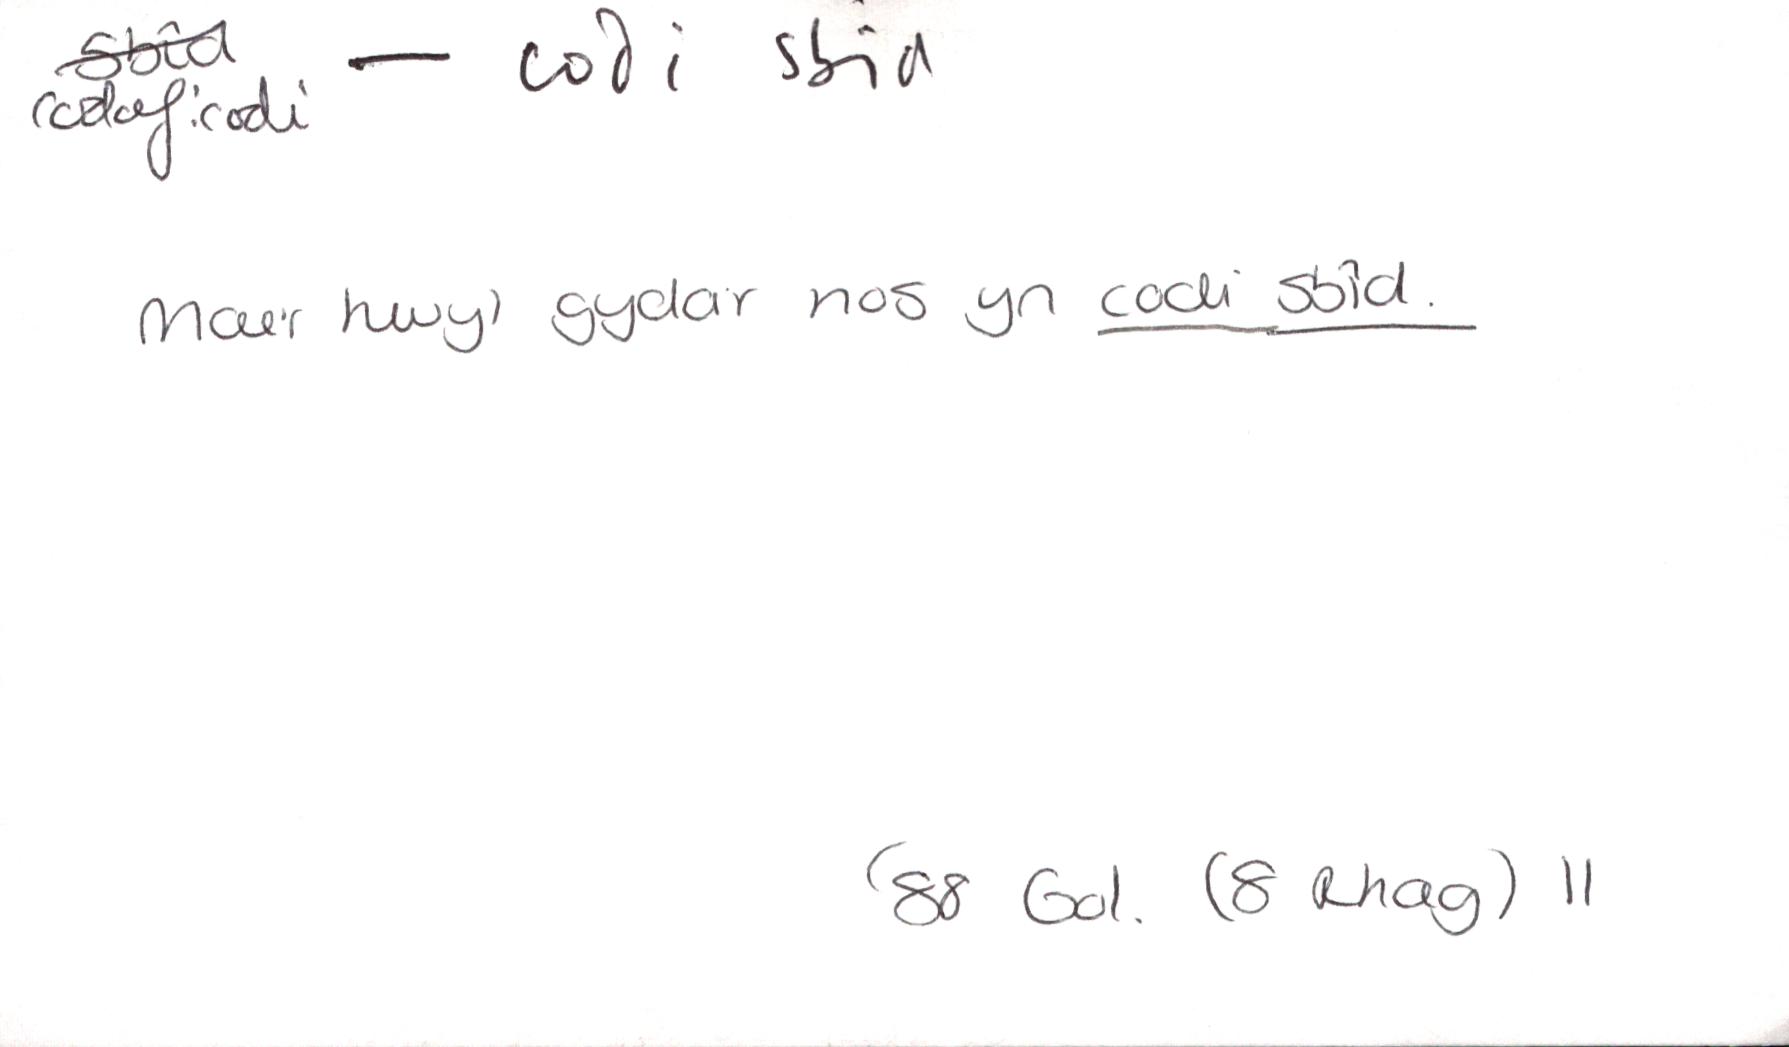 sbîd — codi sbid
codaf: codi
Mae'r hwyl gyda'r nos yn codi sbîd.
'88 Gol. (8 Rhag) 11